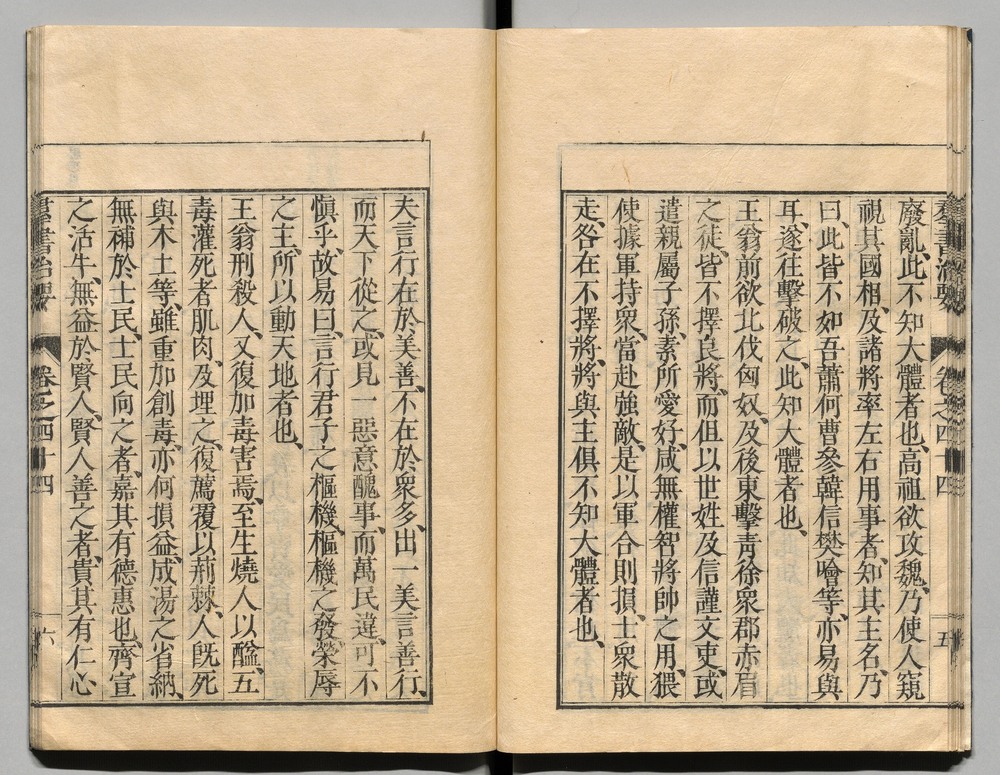 羣書治要 卷之四十四 五
廢亂、此不知大體者也、高祖欲攻魏、乃使人窺
視其國相、及諸將率左右用事者、知其主名、乃
曰、此皆不如吾蕭何曹參韓信樊噲等、亦易與
耳、遂往擊破之、此知大體者也、
王翁前欲北伐匈奴、及後東擊青徐衆郡赤眉
之徒、皆不擇良將、而但以世姓及信謹文吏、或
遣親屬子孫素所愛好、咸無權智將帥之用、猥
使據軍持衆、當赴強敵、是以軍合則損、士衆散
走、咎在不擇將、將與主俱不知大體者也、
夫言行在於美善、不在於衆多、出一美言善行、
而天下從之、或見一惡意醜事、而萬民違、可不
愼乎、故易曰、言行君子之樞機、樞機之發、榮辱
之主、所以動天地者也、
王翁刑殺人、又復加毒害焉、至生燒人、以醯五
毒灌死者肌肉、及埋之、復薦覆以荊棘、人旣死
與木土等、雖重加創毒、亦何損益、成湯之省納、
無補於士民、士民向之者、嘉其有德惠也、齊宣
之活牛、無益於賢人、賢人善之者、貴其有仁心
羣書治要 卷之四十四 六